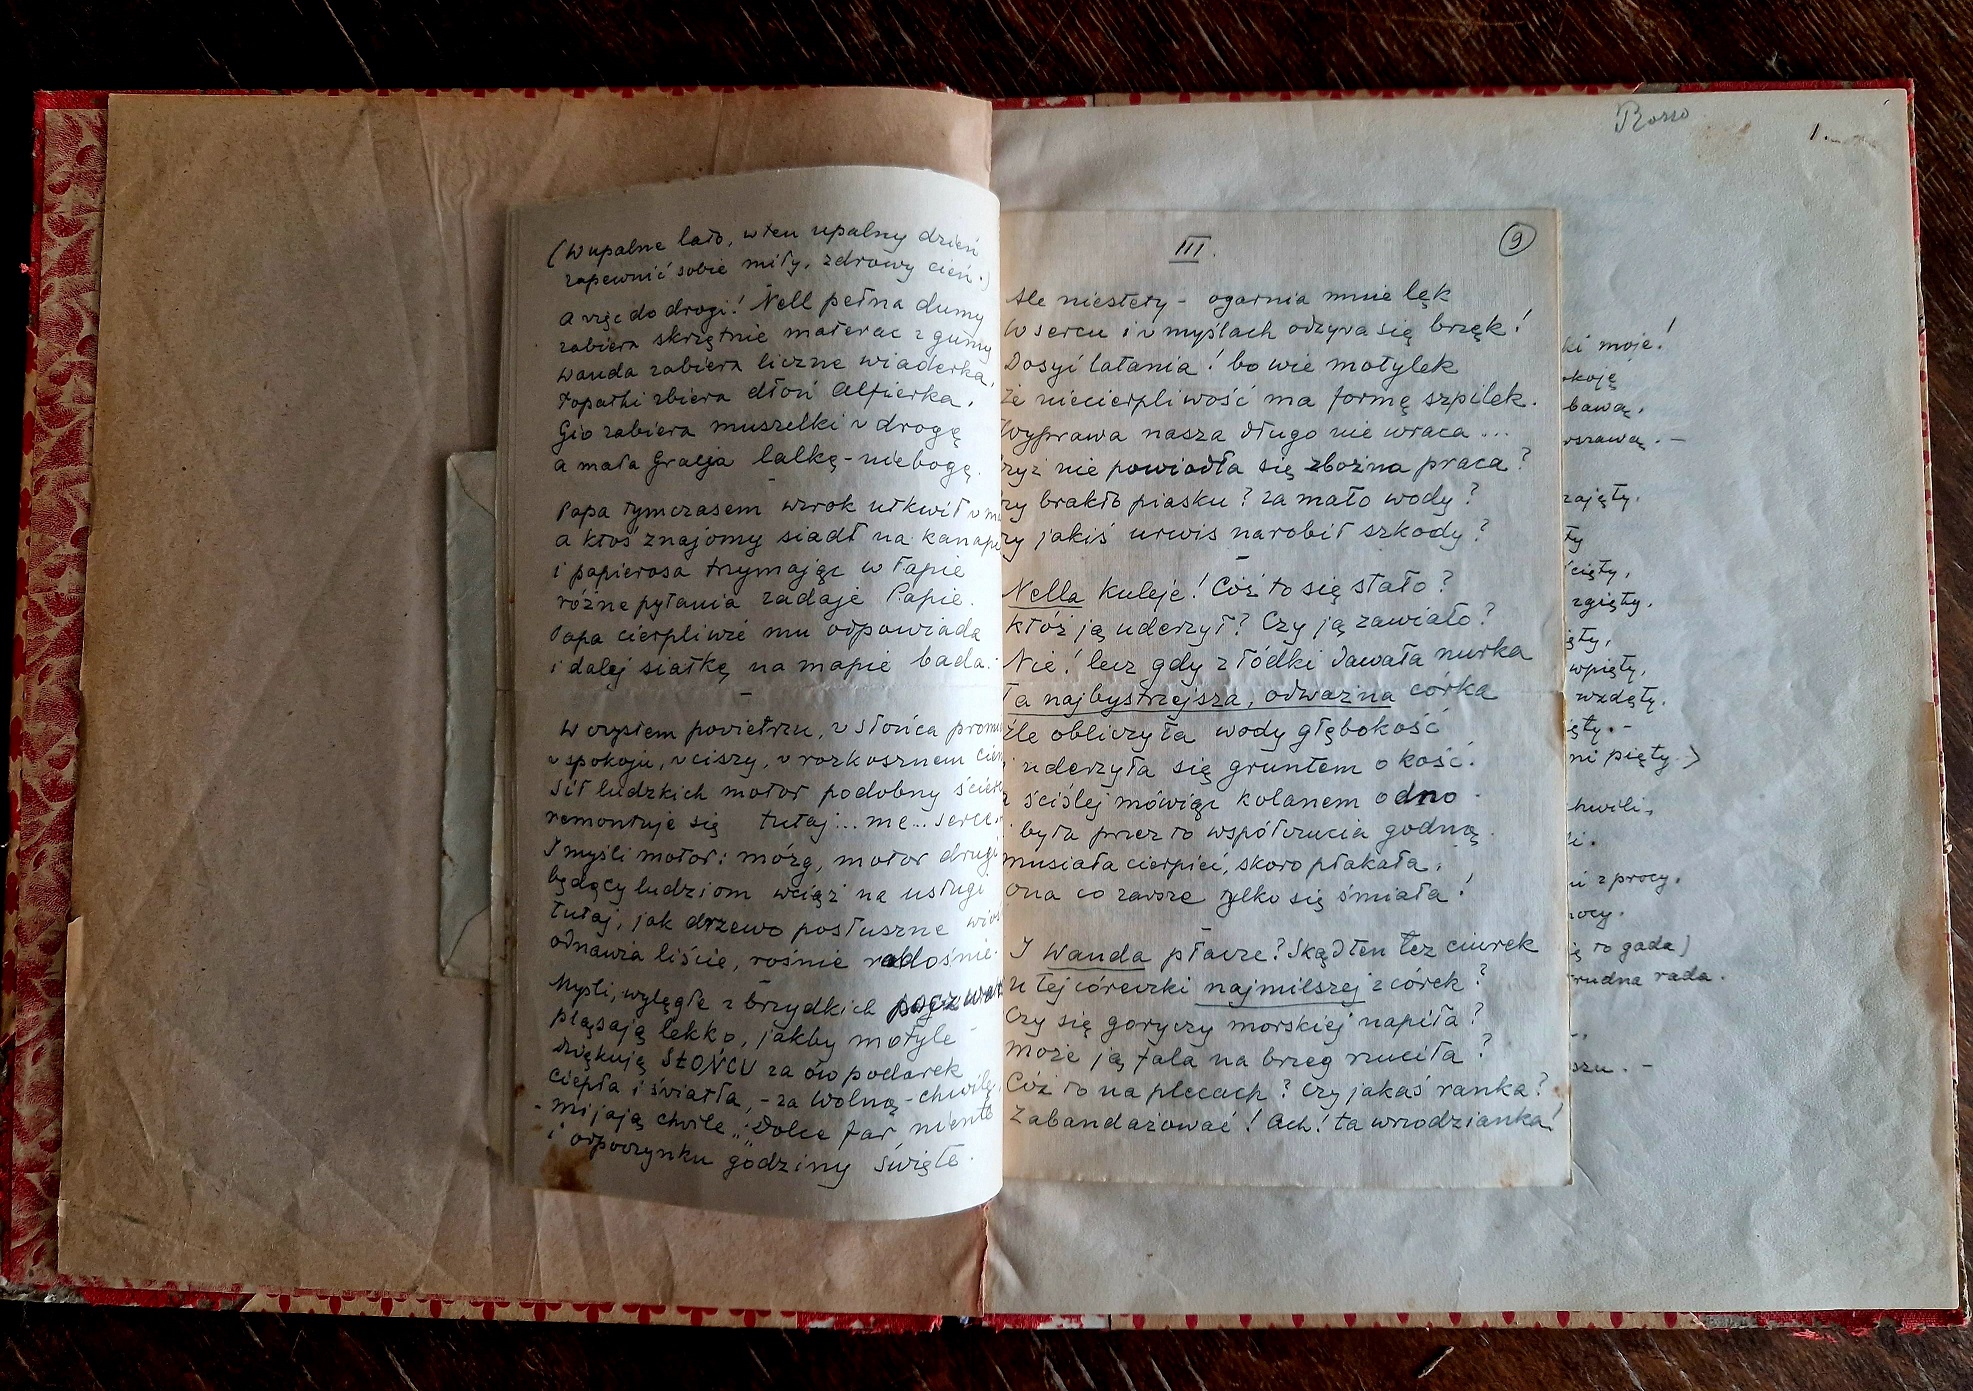 (W upalne lato, w ten upalny dzień
zapewnić sobie miły, zdrowy cień.)
A więc do drogi! Nell pełna dumy
zabiera skrzętnie materac z gumy
Wanda zabiera liczne wiaderka,
łopatki zbiera dłoń Alfierka.
Gio zabiera muszelki w drogę
a mała Gracja lalkę-niebogę.
Papa tymczasem wzrok utkwił w
a ktoś znajomy siadł na
i papierosa trzymając w łapie
różne pytania zadaje Papie.
Papa cierpliwie mu odpowiada
i dalej siatkę na mapie bada.
W czystem powietrzu, w słońca
w spokoju, w ciszy, w rozkosznem
Sił ludzkich motor podobny
remontuje się tutaj... me...
I myśli motor: mózg, motor
będący ludziom wciąż na usługi
tutaj, jak drzewo posłuszne
odnawia liście, rośnie radośnie.
Myśli, wylęgłe z brzydkich
pląsają lekko, jakby motyle -
dziękują SŁOŃCU za ów podarek
ciepła i światła, - za wolną - chwilę
- mijają chwile „Dolce far niente
i odpoczynku godziny święte.
III.
9
Ale niestety - ogarnia mnie lęk
W sercu i w myślach odzywa się brzęk!
Dosyć latania! bo wie motylek
Że niecierpliwość ma formę szpilek.
Wyprawa nasza długo nie wraca...
Czyż nie powiodła się zbożna praca?
Czy brakło piasku? za mało wody?
Czy jakiś urwis narobił szkody?
Nella kuleje! Cóż to się stało?
Któż ją uderzył? Czy ją zawiało?
Nie! lecz gdy z łódki dawała nurka
Ta najbystrzejsza, odważna córka
Źle obliczyła wody głębokość
i uderzyła się gruntem o kość.
a ściślej mówiąc kolanem o dno -
i była przez to współczucia godną.
musiała cierpieć, skoro płakała,
ona co zawsze tylko się śmiała!
I Wanda płacze? Skąd ten łez ciurek
u tej córeczki najmilszej z córek?
Czy się goryczy morskiej napiła?
Może ją fala na brzeg rzuciła?
Cóż to na plecach? Czy jakaś ranka?
Zabandażować! Ach! ta wrzodzianka!
Rosso
1
ki moje!
okoję
bawą,
rszawą. -
zajęty.
ty
zgięty.
wpięty,
wzdęty.
ni pięty.)
hwili,
li.
i z procy.
nocy.
ię to gada)
trudna rada.
szu. -